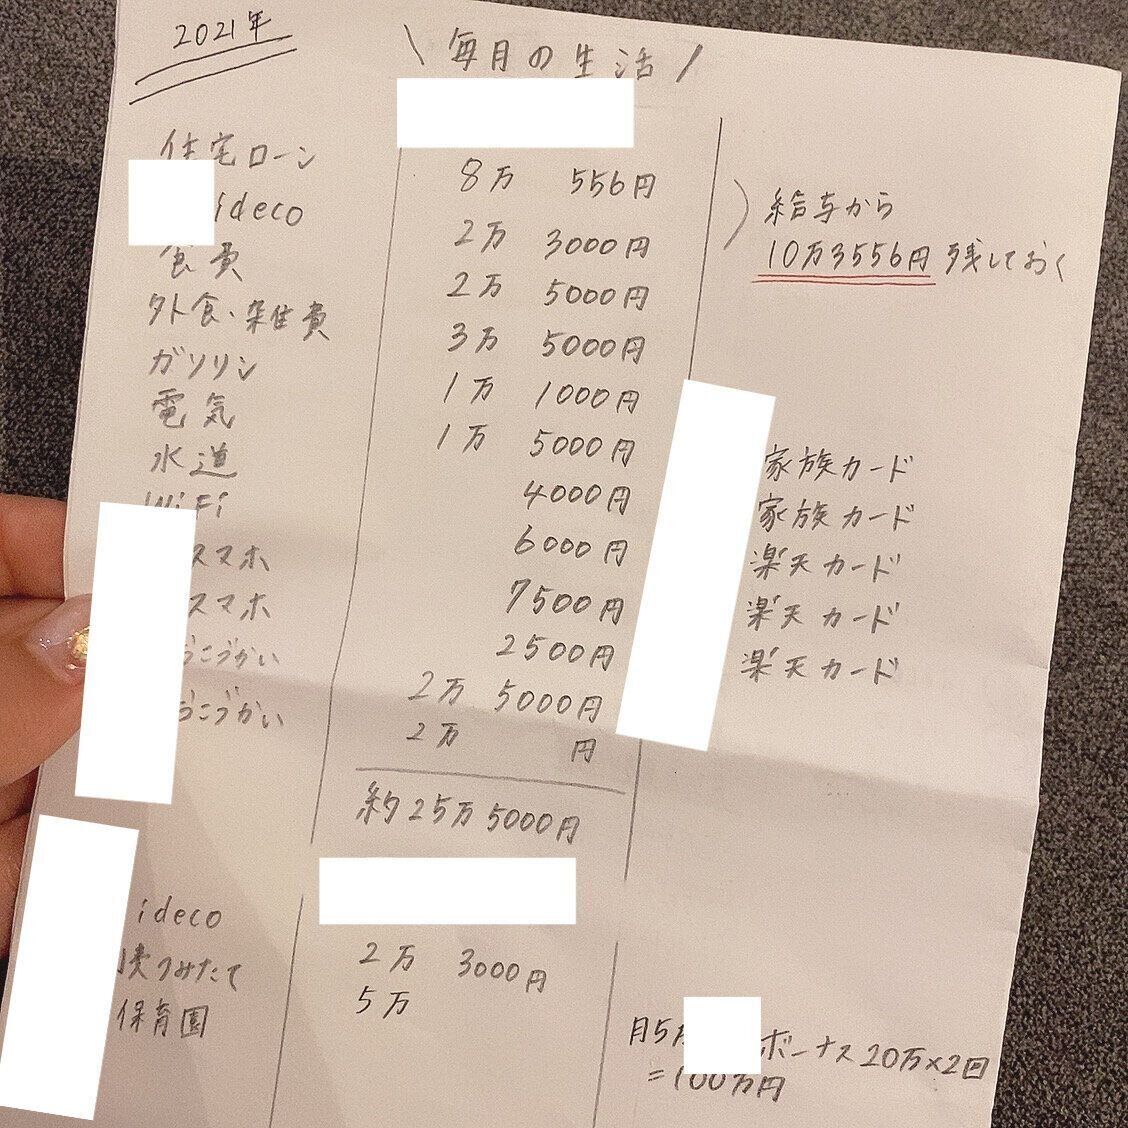 2021年
\ 毎月の生活 /
住宅ローン 8万 556円
ideco 2万 3000円
給与から
10万3556円 残しておく
食費 2万 5000円
外食・雑費 3万 5000円
ガソリン 1万 1000円
電気 1万 5000円 家族カード
水道 4000円 家族カード
WiFi 6000円 楽天カード
スマホ 7500円 楽天カード
スマホ 2500円 楽天カード
おこづかい 2万 5000円
おこづかい 2万 円
約25万5000円
ideco 2万 3000円
つみたて 5万
保育園
月5万 ボーナス20万×2回
=100万円